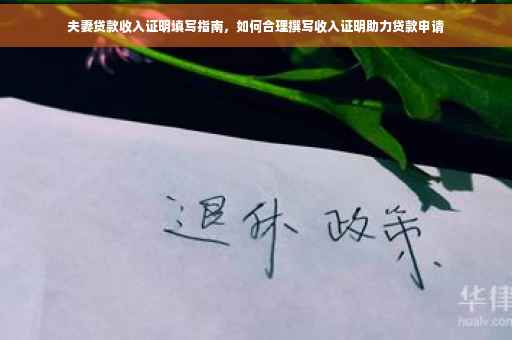 夫妻贷款收入证明填写指南，如何合理撰写收入证明助力贷款申请
退休 政策
华律
hualv.com